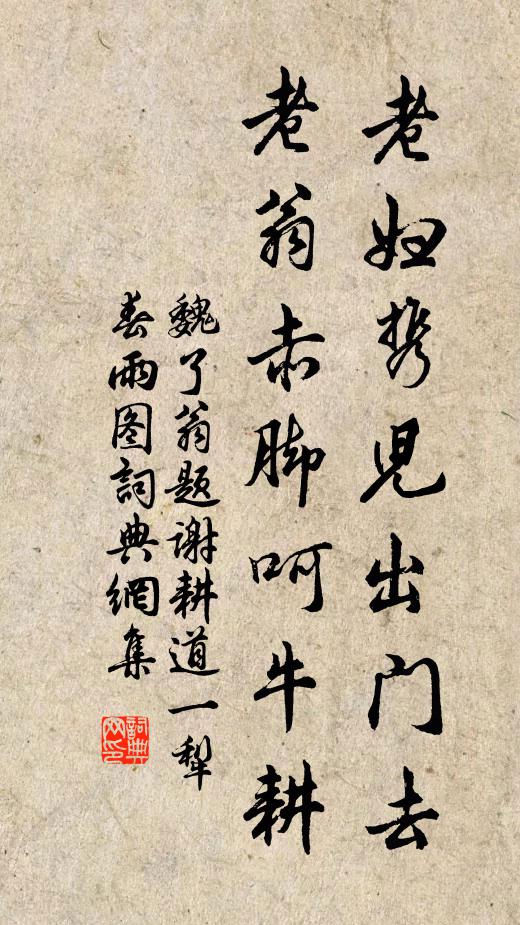 老妇携兒出门去
老翁赤脚呵牛耕
魏了翁题谢耕道一犁
春雨图詞典網集
詞典网印